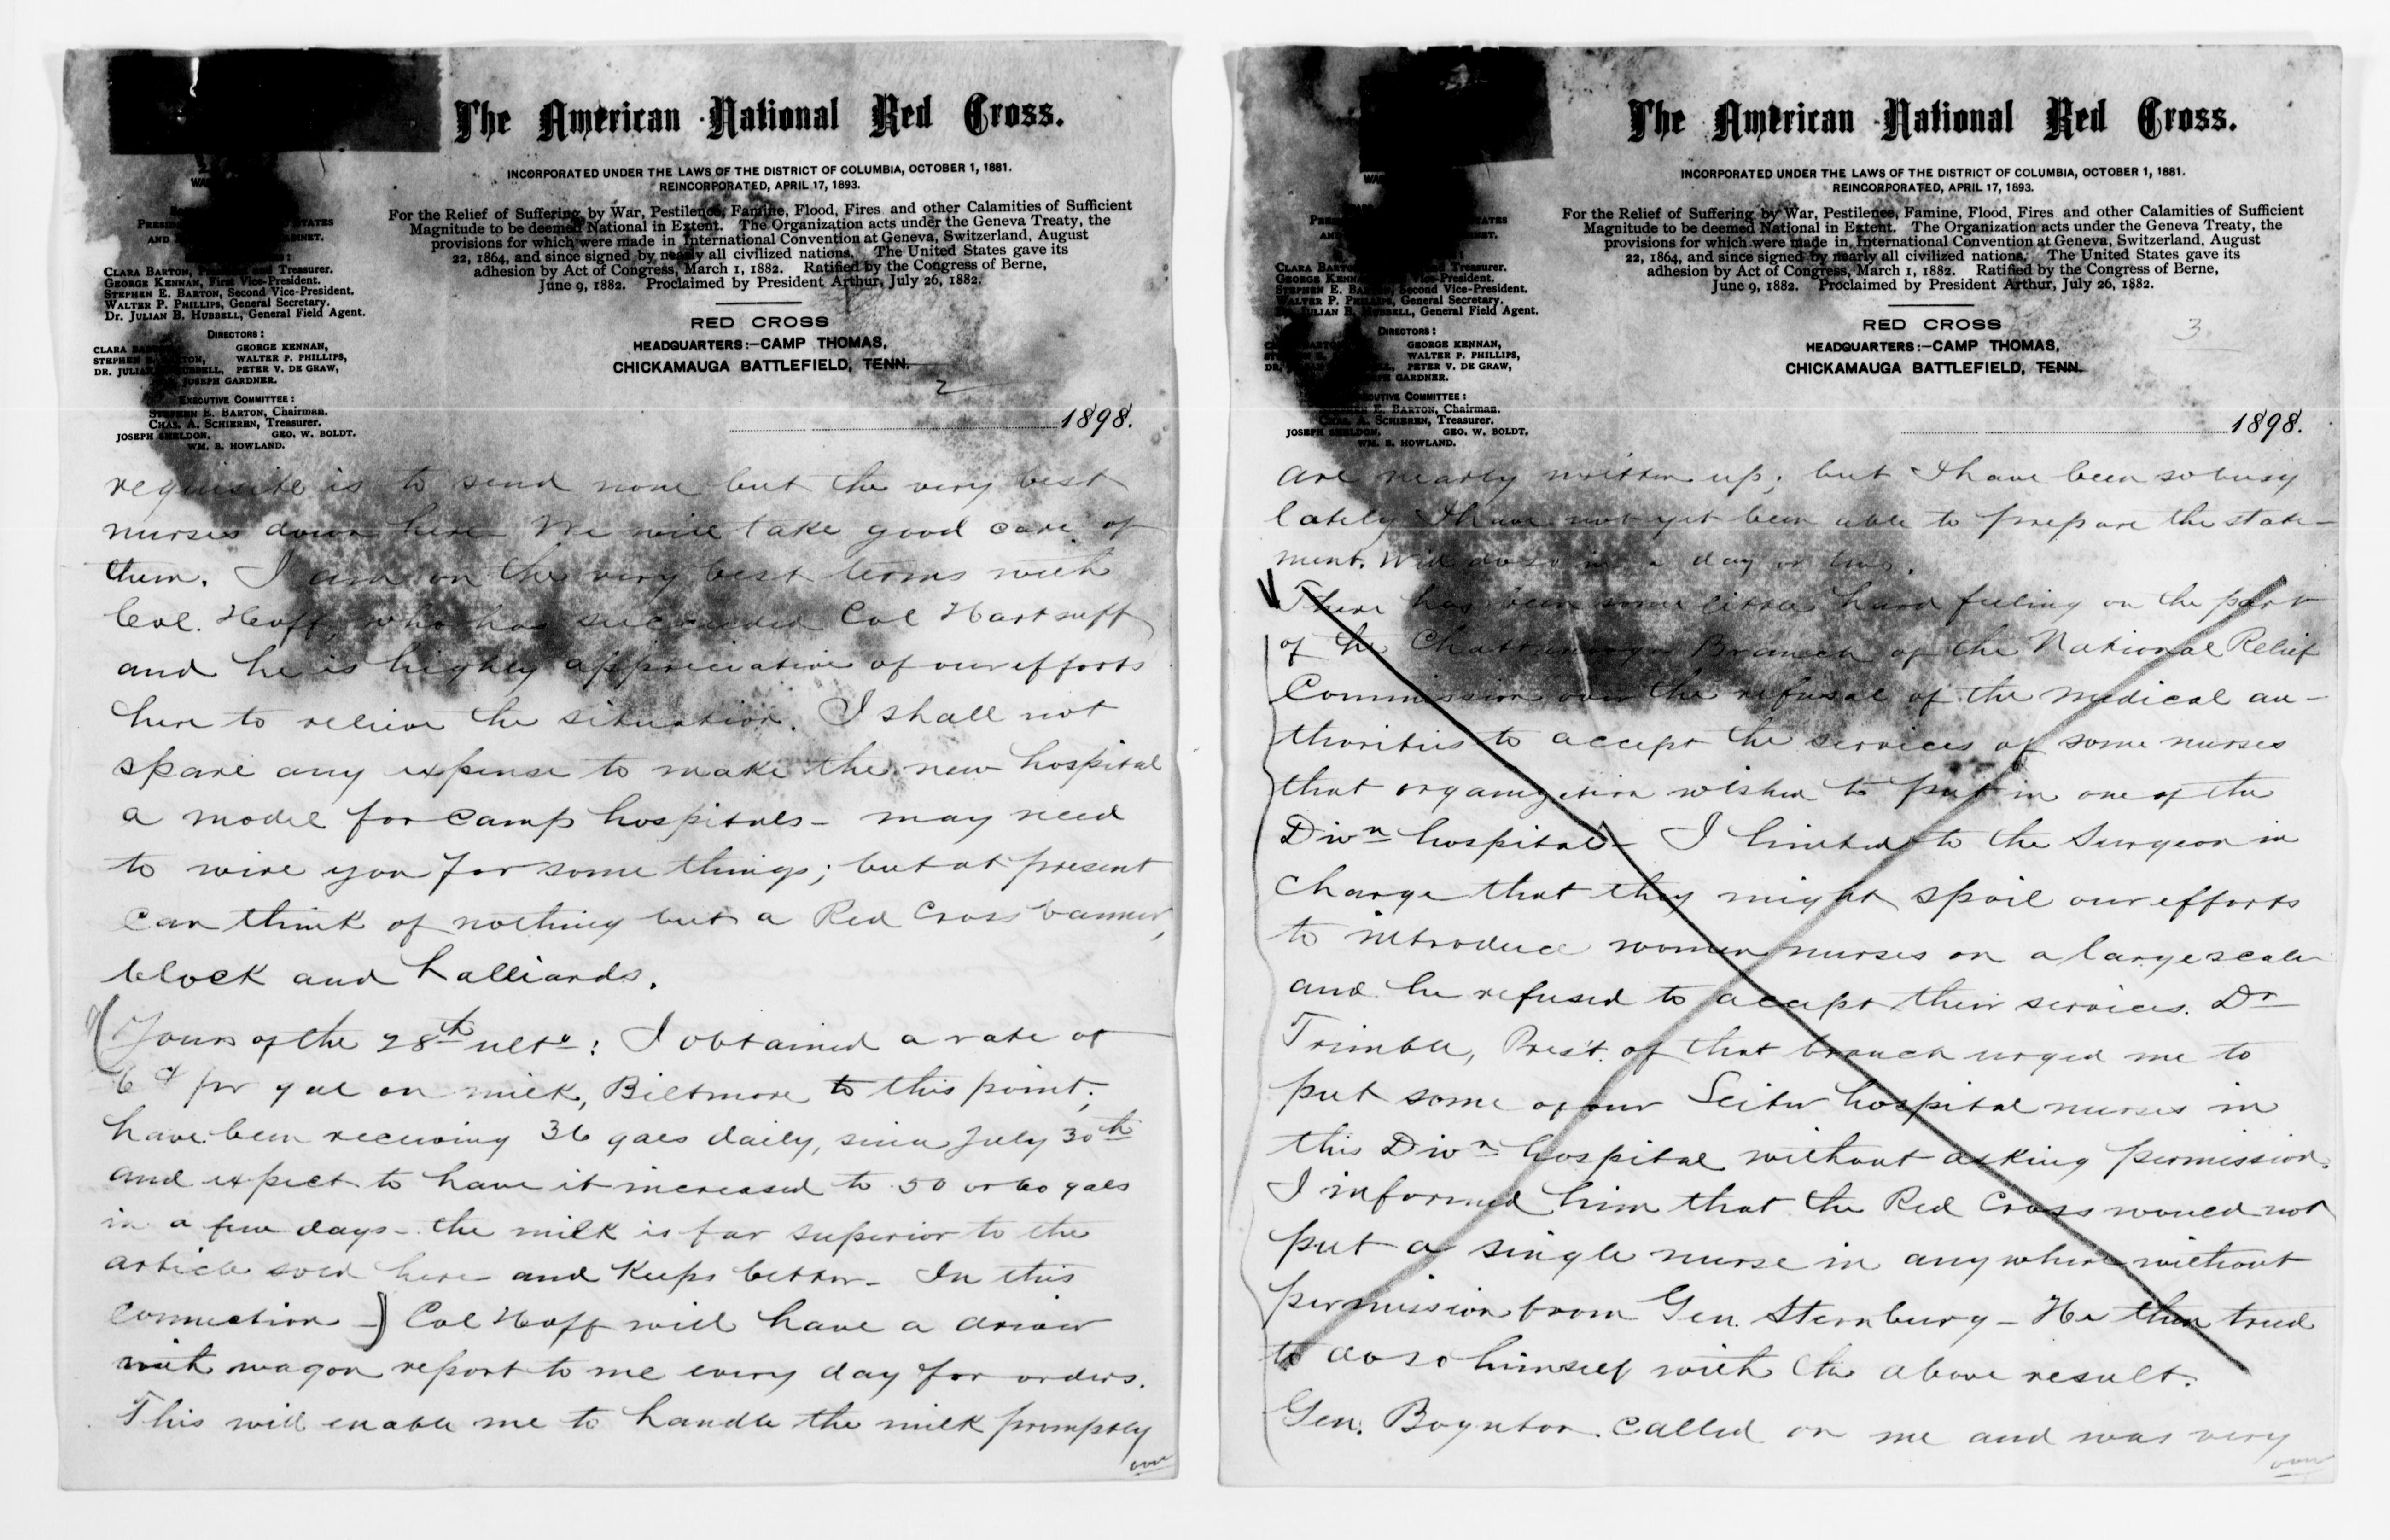 The American National Red Cross.
INCORPORATED UNDER THE LAWS OF THE DISTRICT OF COLUMBIA, OCTOBER 1, 1881.
REINCORPORATED, APRIL 17, 1893.
For the Relief of Suffering by War, Pestilence, Famine, Flood, Fires and other Calamities of Sufficient
Magnitude to be deemed National in Extent. The Organization acts under the Geneva Treaty, the
provisions for which were made in International Convention at Geneva, Switzerland, August
22, 1864, and since signed by nearly all civilized nations. The United States gave its
adhesion by Act of Congress, March 1, 1882. Ratified by the Congress of Berne,
June 9, 1882. Proclaimed by President Arthur, July 26, 1882.
STATES
AND
CLARA BARTON, and Treasurer.
GEORGE KENNAN, First Vice-President.
STEPHEN E. BARTON, Second Vice-President.
WALTER P. PHILLIPS, General Secretary.
Dr. JULIAN B. HUBBELL, General Field Agent.
DIRECTORS:
CLARA GEORGE KENNAN,
STEPHEN BARTON, WALTER P. PHILLIPS,
DR. JULIAN HUBBELL, PETER V. DE GRAW,
JOSEPH GARDNER.
EXECUTIVE COMMITTEE:
STEPHEN E. BARTON, Chairman.
CHAS. A. SCHIEREN, Treasurer.
JOSEPH SHELDON. GEO. W. BOLDT.
WM. B. HOWLAND.
RED CROSS
HEADQUARTERS:—CAMP THOMAS,
CHICKAMAUGA BATTLEFIELD, TENN.
2
1898.
requisite is to send none but the very best
nurses down here We will take good care of
them. I am on the very best terms with
Col. Hoff, who has succeeded Col Hartsuff
and he is highly appreciative of our efforts
here to relieve the situation. I shall not
spare any expense to make the new hospital
a model for camp hospitals - may need
to wire you for some things; but at present
can think of nothing but a Red Cross banner,
block and halliards.
Yours of the 28th ulto: I obtained a rate of
6¢ per gal on milk, Biltmore to this point;
have been receiving 36 gals daily, since July 30th
and expect to have it increased to 50 or 60 gals
in a few days - the milk is far superior to the
article sold here and keeps better - In this
connection -) Col Hoff will have a driver
with wagon report to me every day for orders.
This will enable me to handle the milk promptly
over
The American National Red Cross.
INCORPORATED UNDER THE LAWS OF THE DISTRICT OF COLUMBIA, OCTOBER 1, 1881.
REINCORPORATED, APRIL 17, 1893.
For the Relief of Suffering by War, Pestilence, Famine, Flood, Fires and other Calamities of Sufficient
Magnitude to be deemed National in Extent. The Organization acts under the Geneva Treaty, the
provisions for which were made in International Convention at Geneva, Switzerland, August
22, 1864, and since signed by nearly all civilized nations. The United States gave its
adhesion by Act of Congress, March 1, 1882. Ratified by the Congress of Berne,
June 9, 1882. Proclaimed by President Arthur, July 26, 1882.
STATES
CLARA BARTON and Treasurer.
GEORGE KENNAN, Vice-President.
STEPHEN E. BARTON, Second Vice-President.
WALTER P. PHILLIPS, General Secretary.
JULIAN B. HUBBELL, General Field Agent.
DIRECTORS:
GEORGE KENNAN,
WALTER P. PHILLIPS,
PETER V. DE GRAW,
GARDNER.
EXECUTIVE COMMITTEE:
E. BARTON, Chairman.
CHAS. A. SCHIEREN, Treasurer.
JOSEPH SHELDON. GEO. W. BOLDT.
WM. B. HOWLAND.
RED CROSS
HEADQUARTERS:—CAMP THOMAS,
CHICKAMAUGA BATTLEFIELD, TENN.
3
1898.
are nearly written up; but I have been so busy
lately I have not yet been able to prepare the state-
ment. Will do so in a day or two.
There has been some little hard feeling on the part
of the Chattanooga Branch of the National Relief
Commission over the refusal of the medical au-
thorities to accept the services of some nurses
that organization wished to put in one of the
Divn hospitals - I hinted to the Surgeon in
charge that they might spoil our efforts
to introduce women nurses on a large scale
and he refused to accept their services. Dr
Trimble, Pres't. of that branch urged me to
put some of our Leiter hospital nurses in
this Divn hospital without asking permission.
I informed him that the Red Cross would not
put a single nurse in anywhere without
permission from Gen. Sternburg - He then tried
to do so himself with the above result.
Gen. Boynton called on me and was very
over